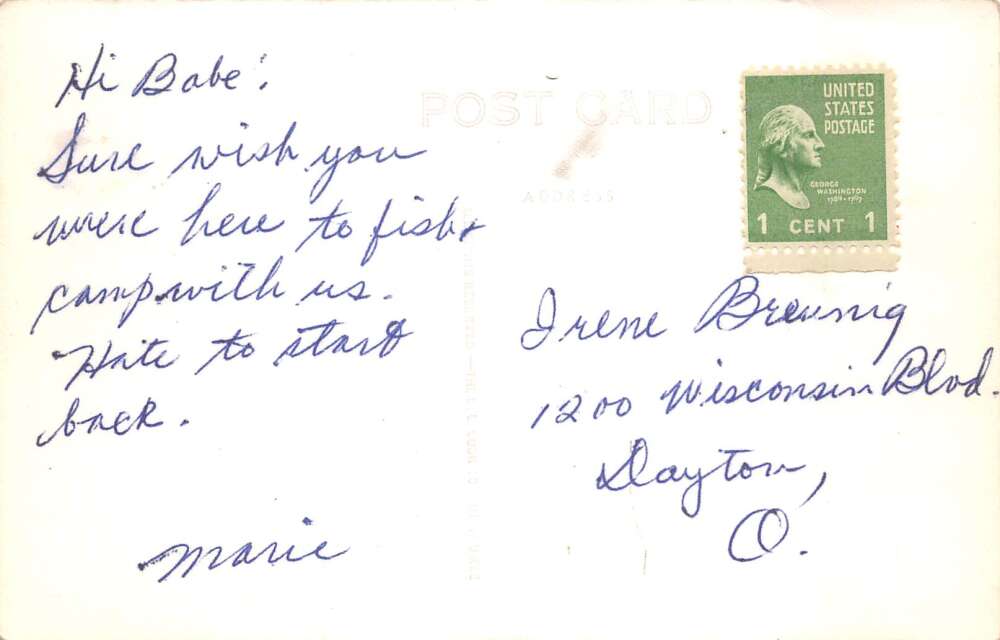 Hi Babe!
Sure wish you
were here to fish &
camp with us.
Hate to start
back.
Marie
POST CARD
ADDRESS
UNITED
STATES
POSTAGE
GEORGE
WASHINGTON
1789-1797
1 CENT 1
Irene Breunig
1200 Wisconsin Blvd.
Dayton,
O.